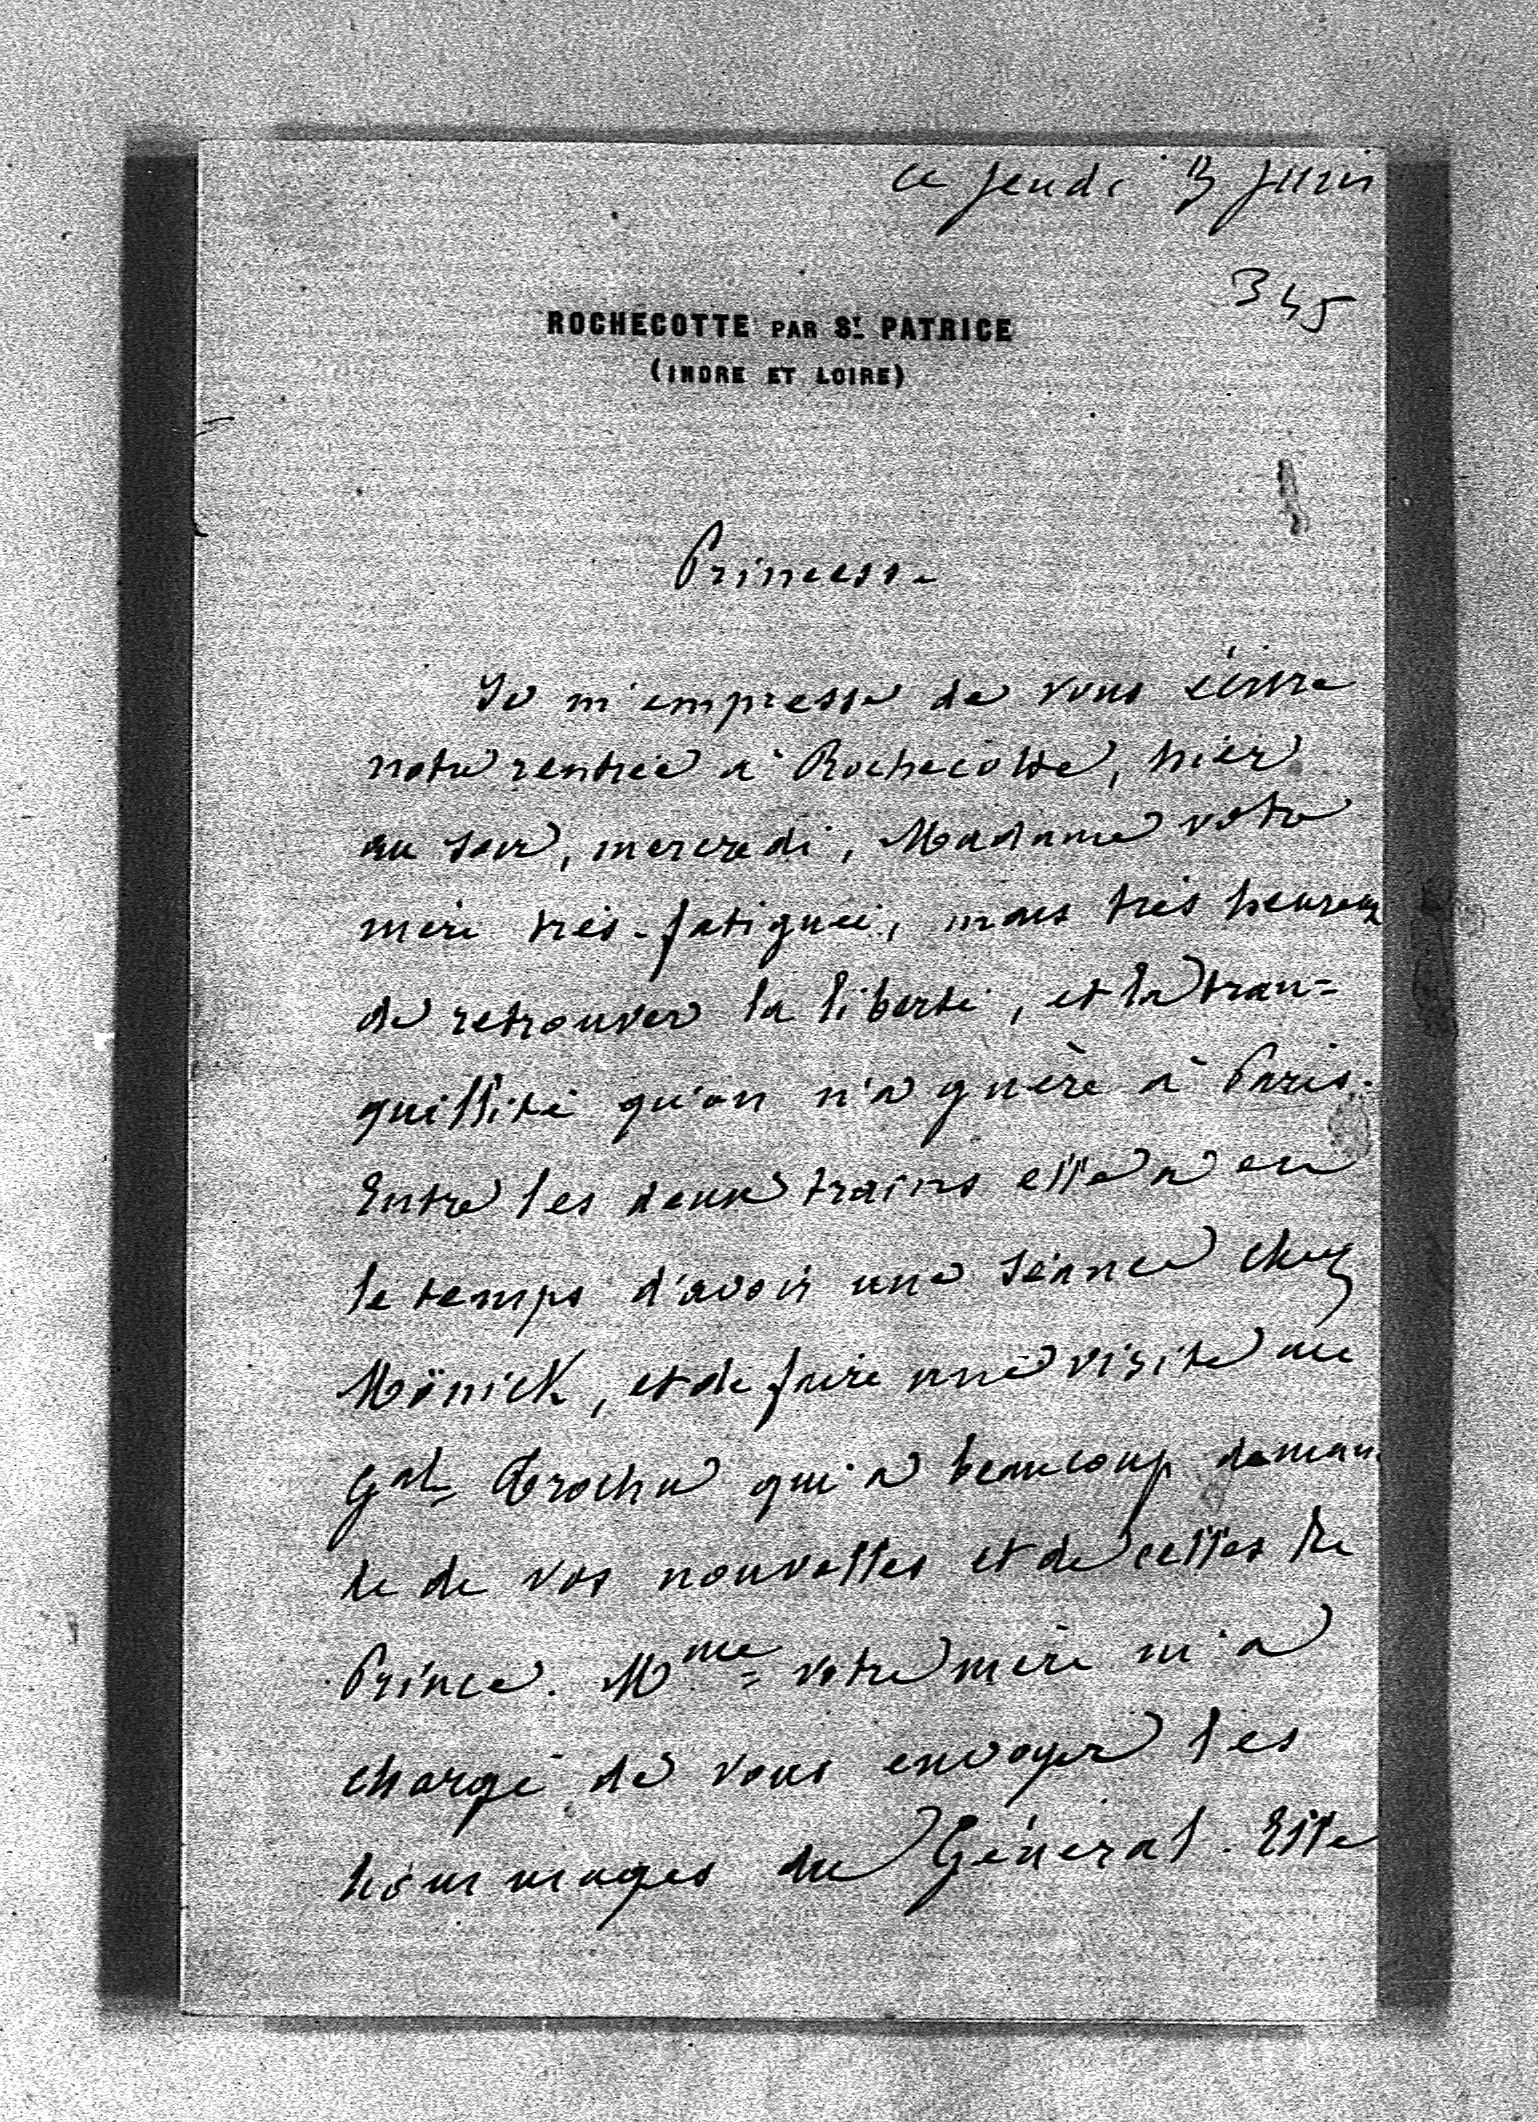 ce jeudi 3 juin
345
ROCHECOTTE PAR St. PATRICE
(INDRE ET LOIRE)
Princesse
Je m'empresse de vous écrire
notre rentrée à Rochecotte, hier
au soir, mercredi, Madame votre
mère très-fatiguée, mais très heureuse
de retrouver la liberté, et la tran=
quillité qu'on n'a guère à Paris.
Entre les deux trains elle a eu
le temps d'avoir une séance chez
Mönick, et de faire une visite au
Gal Trochu qui a beaucoup deman-
dé de vos nouvelles et de celles du
Prince. Mme votre mère m'a
chargé de vous envoyer les
hommages du Général. Elle